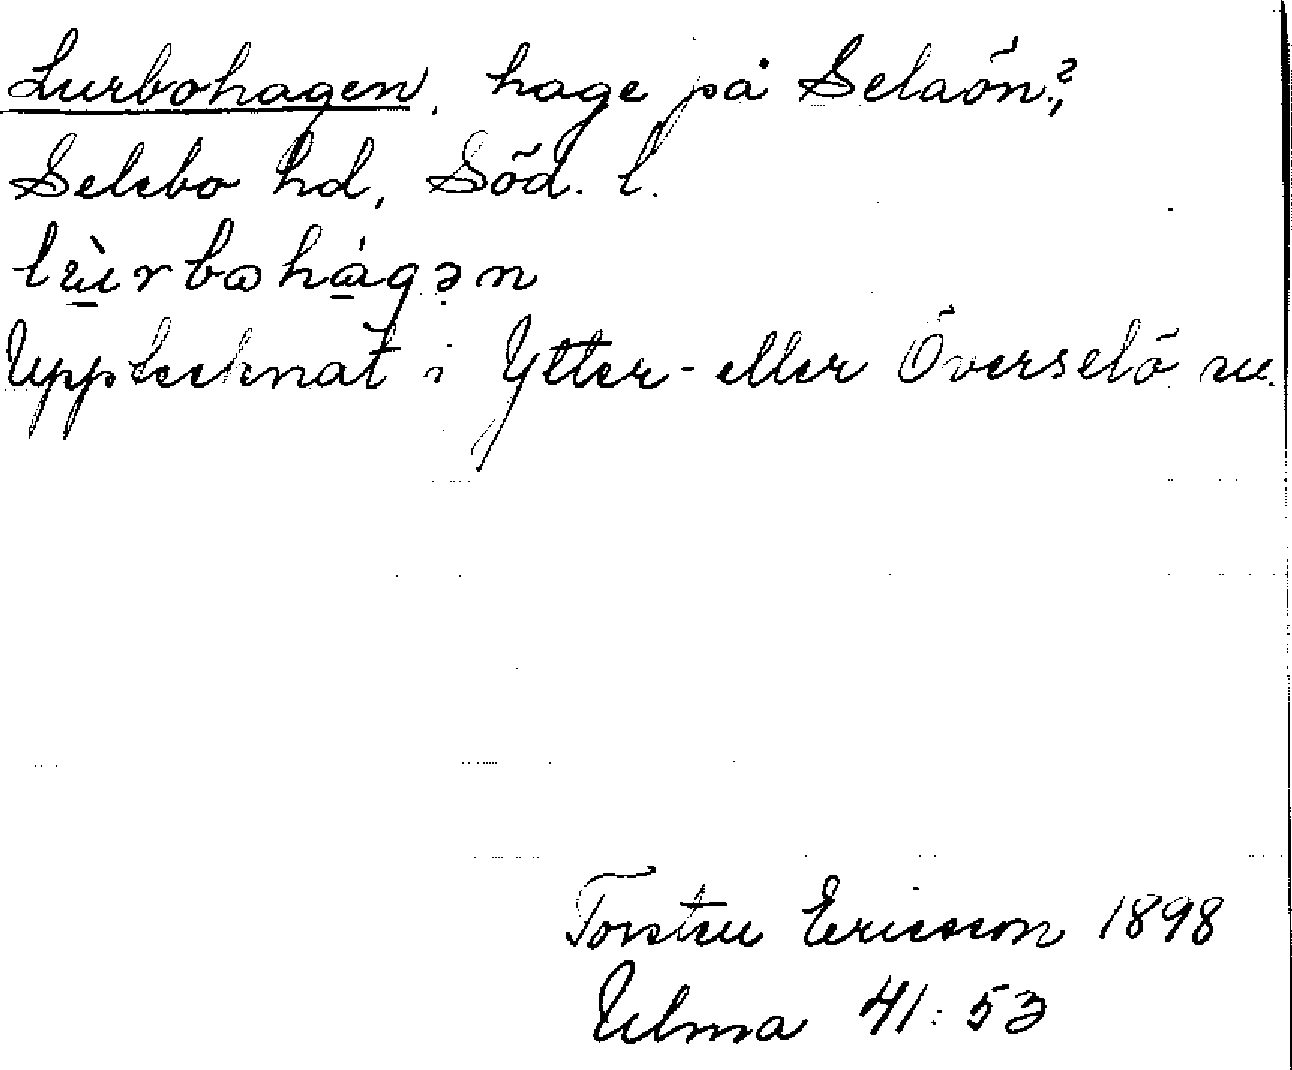 Lurbohagen, hage på Selaön?,
Selebo hd, Söd. l.
lɯ̀rbωhágən
Upptecknat i Ytter- eller Överselö sn.
Torsten Ericsson 1898
Ulma 41:53